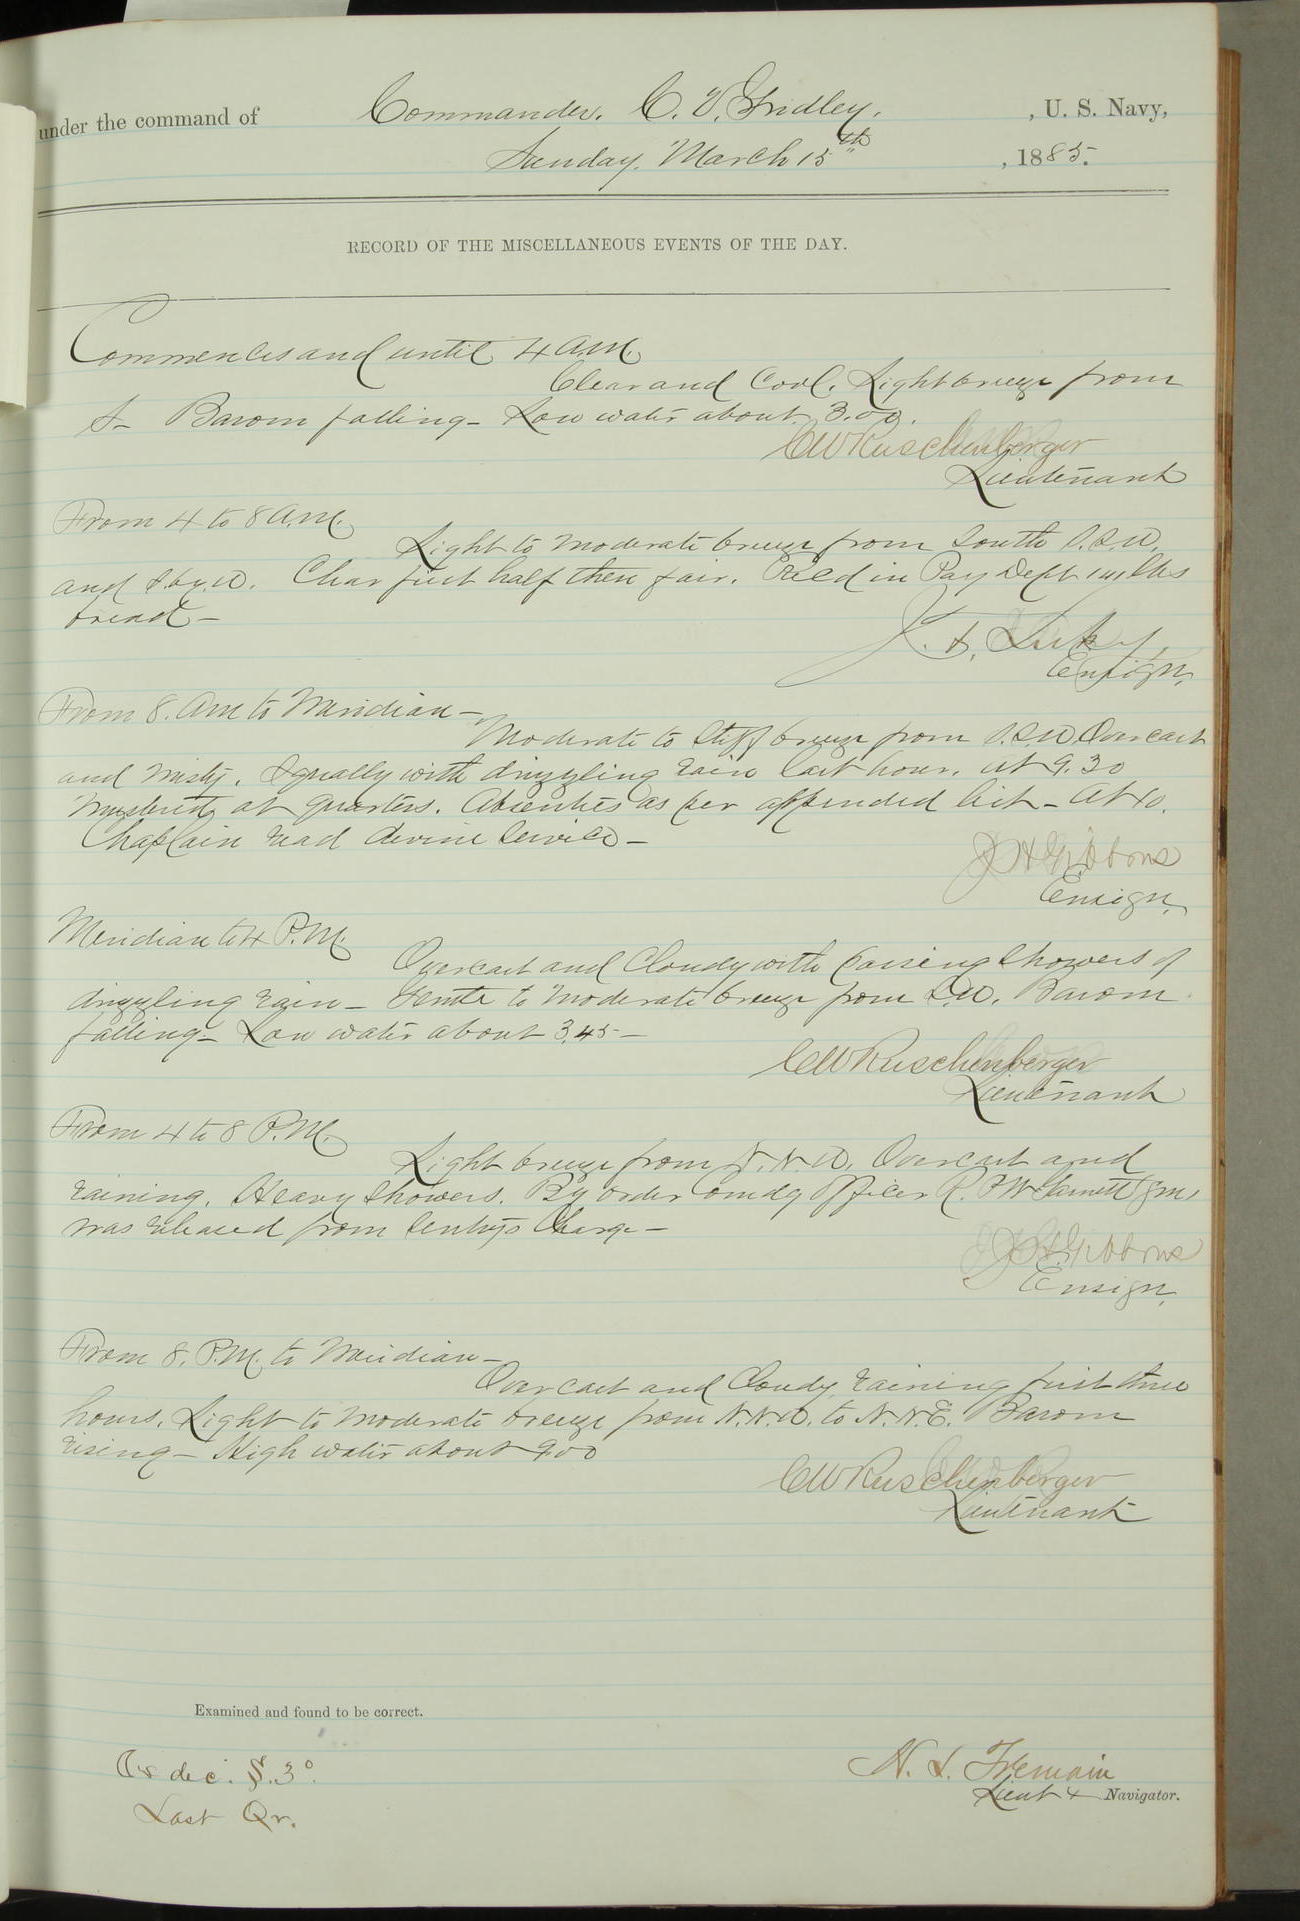 under the command of Commander. C. V. Gridley. , U. S. Navy,
Sunday. March 15th , 1885.
RECORD OF THE MISCELLANEOUS EVENTS OF THE DAY.
Commences and until 4 A.M.
Clear and Cool. Light breeze from
S- Barom falling- Low water about 3.00.
CW Ruschenberger
Lieutenant
From 4 to 8 A.M.
Light to moderate breeze from South S.S.W.
and S.by.W. Clear first half then fair. Rec'd in Pay Dept lbs
bread-
Ensign.
From 8. AM to Meridian-
Moderate to stiff breeze from S.S.W. Overcast
and misty. Squally with drizzling rain last hour. At 9.30
mustered at quarters. Absentees as per appended list- At 10.
Chaplain read divine service-
J H Gibbons
Ensign.
Meridian to 4 P.M.
Overcast and Cloudy with passing showers of
drizzling rain- Gentle to moderate breeze from S.W. Barom
falling- Low water about 3.45-
CW Ruschenberger
Lieutenant
From 4 to 8 P.M.
Light breeze from N.N.W. Overcast and
raining. Heavy showers. By order Comdg Officer R.
was released from sentry's Charge-
J H Gibbons
Ensign.
From 8. P.M. to Meridian-
Overcast and Cloudy raining first three
hours. Light to moderate breeze from N.N.W. to N.N.E. Barom
rising- High water about 9.00
CW Ruschenberger
Lieutenant
Examined and found to be correct.
dec. S. 3°.
Last Qr.
Tremain
Lieut & Navigator.